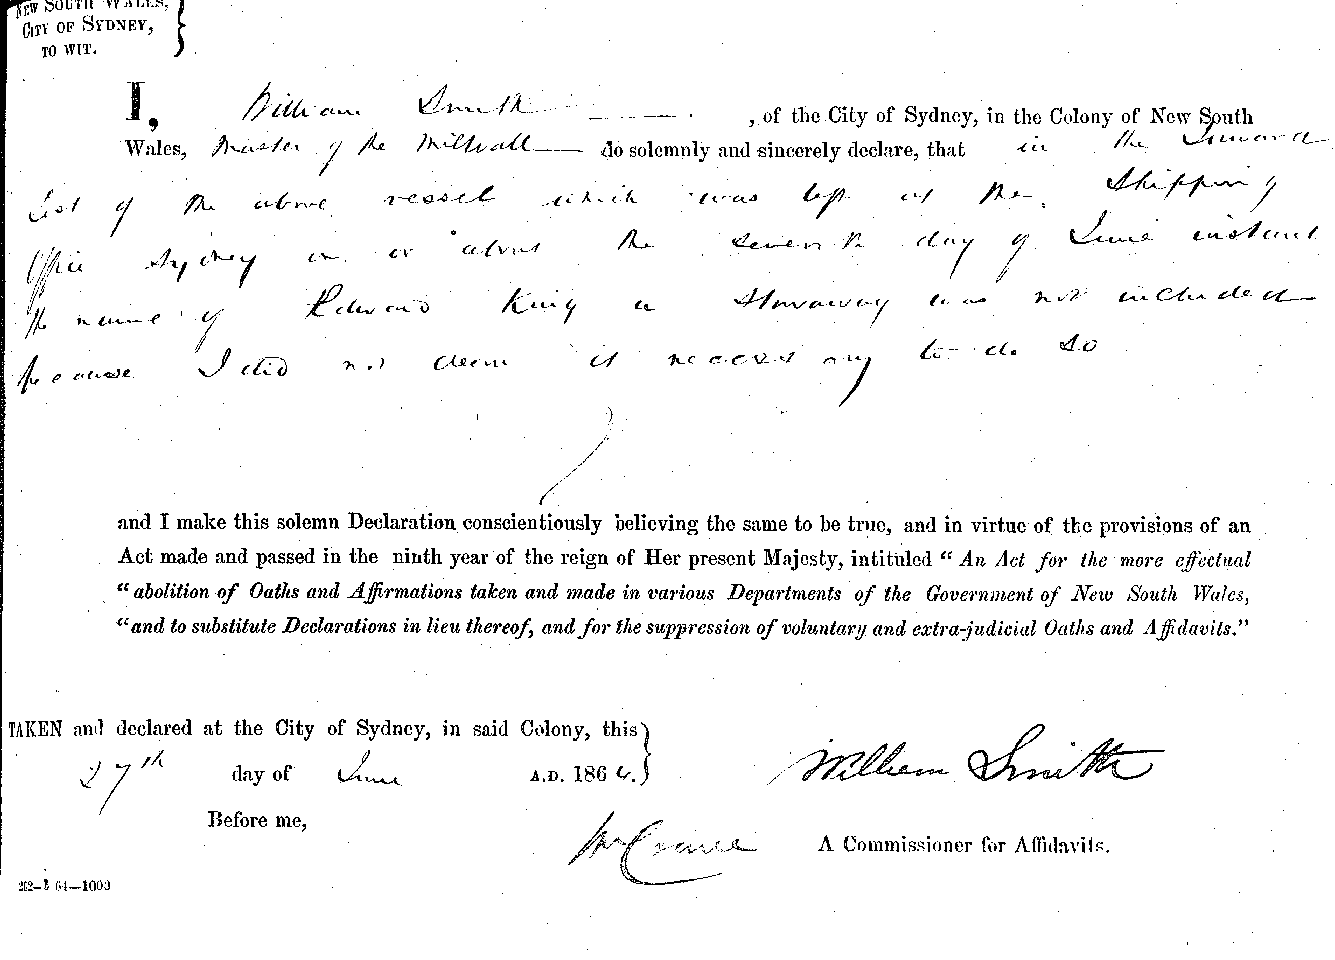 NEW SOUTH WALES,
CITY OF SYDNEY,
TO WIT.
I, William Smith , of the City of Sydney, in the Colony of New South
Wales, Master of the Millwall do solemnly and sincerely declare, that in the Inward
List of the above vessel which was left at the Shipping
Office Sydney on or about the seventh day of June instant
the name of Edward King a Stowaway was not included
because I did not deem it necessary to do so
and I make this solemn Declaration conscientiously believing the same to be true, and in virtue of the provisions of an
Act made and passed in the ninth year of the reign of Her present Majesty, intituled “ An Act for the more effectual
“ abolition of Oaths and Affirmations taken and made in various Departments of the Government of New South Wales,
“and to substitute Declarations in lieu thereof, and for the suppression of voluntary and extra-judicial Oaths and Affidavits.”
TAKEN and declared at the City of Sydney, in said Colony, this
27th day of June A.D. 186
William Smith
Before me,
A Commissioner for Affidavits.
64—1000